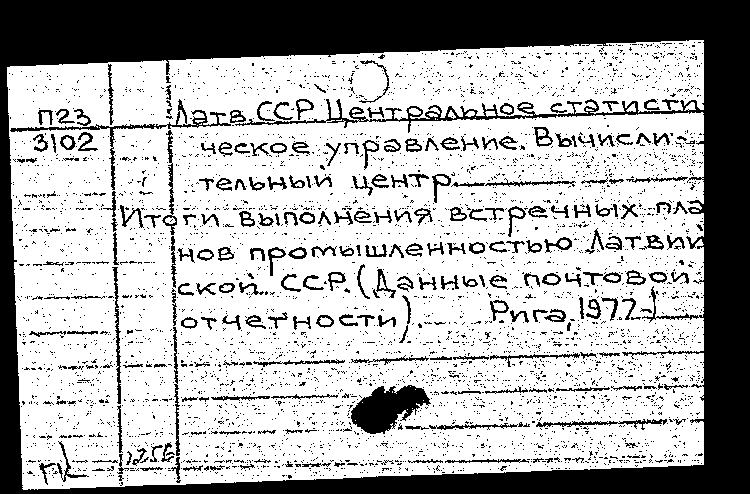 П23 Латв. ССР Центральное статисти
3102 ческое управление. Вычисли-
тельный центр.
Итоги выполнения встречных пла
нов промышленностью Латвий
ской ССР. (Данные почтовой
отчетности). Рига, 1977-